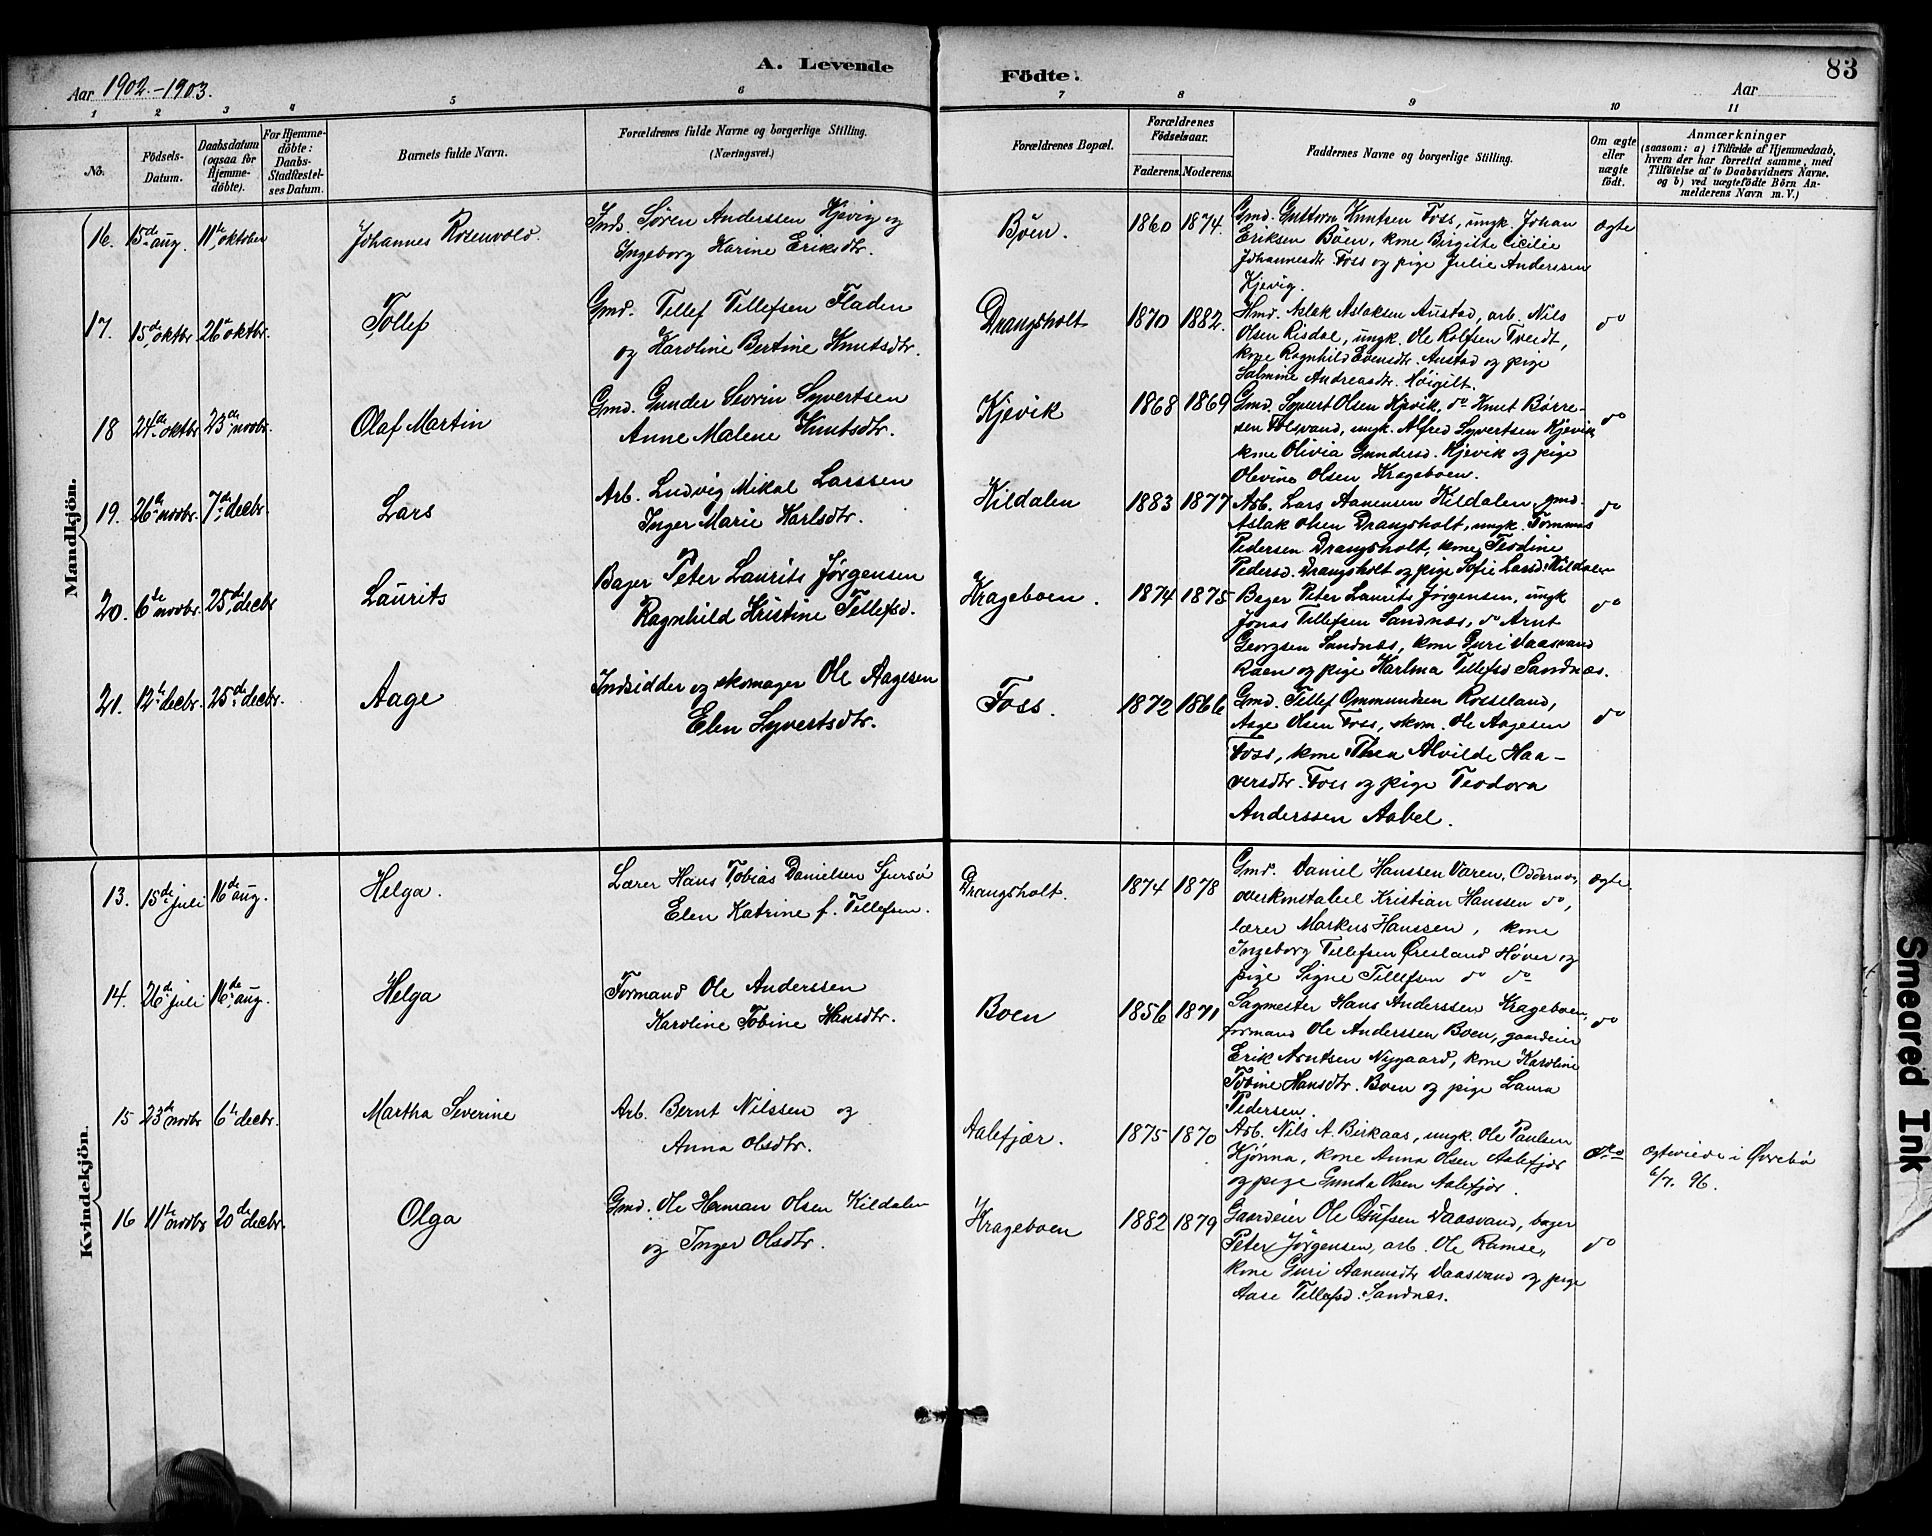 A. Levende Födte.
83
Aar 1902.-1903.
Aar
1 2 3 4 5 6 7 8 9 10 11
No.
Födsels-Datum.
Daabsdatum (ogsaa for Hjemme-döbte).
For Hjemme-döbte: Daabs-Stadfæstel-ses Datum.
Barnets fulde Navn.
Forældrenes fulde Navne og borgerlige Stilling. (Næringsvei.)
Forældrenes Bopæl.
Forældrenes Födselsaar.
Faderens. Moderens.
Faddernes Navne og borgerlige Stilling.
Om ægte eller uægte födt.
Anmærkninger
(saasom: a) i Tilfælde af Hjemmedaab,
hvem der har forrettet samme, med
Tilföielse af to Daabsvidners Navne.
og b) ved uægtefödte Börn An-
melderens Navn m. V.)
Mandkjön.
16. 15de aug. 11te oktober
Johannes Rosenvold.
Inds. Søren Anderssen Kjevig og
Ingeborg Karine Eriksdtr.
Bøen.
1860 1874.
Gmd. Guttorm Knutsen Foss, ungk. Johan
Eriksen Böen, kone Birgitte Cicilie
Johannesdtr Foss og pige Julie Anderssen
Kjevig.
ægte
17. 15de oktbr 26de oktbr.
Tollef
Gmd. Tellef Tellefsen Fladen
og Karoline Bertine Knutsdtr.
Drangsholt
1870 1882.
Hmd. Aslak Aslaksen Austad, arb. Nils
Olsen Risdal, ungk. Ole Rolfsen Tveidt,
kone Ragnhild Evensdtr. Austad og pige
Salmine Andreasdtr. Höigilt.
do
18 24de oktbr 23de novbr.
Olaf Martin
Gmd. Gunder Severin Syvertsen
Anne Malene Knutsdtr.
Kjevik
1868 1869
Gmd. Syvert Olsen Kjevik, do Knut Børre-
sen Tolsvand, ungk. Alfred Syvertsen Kjevik,
kone Olivia Gundersd. Kjevik og pige
Olevine Olsen Krageboen.
do
19. 26de novbr. 7de decbr.
Lars
Arb. Ludvig Mikal Larssen
Inger Marie Karlsdtr.
Kildalen
1883 1877
Arb. Lars Aanensen Kildalen, gmd.
Aslak Olsen Drangsholt, ungk. Tommas
Pedersen Drangsholt, kone Teodine
Pedersd. Drangsholt og pige Sofie Larsd. Kildalen
do
20. 6te novbr. 25de decbr
Laurits
Bager Peter Laurits Jørgensen
Ragnhild Kristine Tellefsd.
Krageboen.
1874 1875
Bager Peter Laurits Jørgensen, ungk
Jonas Tellefsen Sandnæs, do Arnt
Georgsen Sandnæs, kone Guri Vaasvand
Raen og pige Karlma Tellefsd Sandnæs.
do
21. 12te decbr. 25de decbr.
Aage
Indsidder og skomager Ole Aagesen
Elen Syvertsdtr.
Foss.
1872 1866
Gmd. Tellef Ommundsen Rosseland,
Aage Olsen Foss, skom. Ole Aagesen
Foss, kone Thea Alvilde Haa-
versdtr. Foss og pige Teodora
Anderssen Aabel.
do
Kvindekjön.
13. 15de juli 16de aug.
Helga.
Lærer Hans Tobias Danielsen Gjursö
Elen Katrine f. Tellefsen.
Drangsholt.
1874 1878
Gmd. Daniel Hanssen Varen, Oddernes,
overkonstabel Kristian Hanssen do,
lærer Markus Hanssen, kone
Ingeborg Tellefsen Øresland Høver og
pige Signe Tellefsen do do
ægte.
14. 26de juli 16de aug.
Helga
Formand Ole Anderssen
Karoline Tobine Hansdtr.
Boen
1856 1871
Sagmester Hans Anderssen Krageboen,
formand Ole Anderssen Boen, gaardeier
Erik Arntsen Nygaard, kone Karoline
Tobine Hansdtr. Boen og pige Laura
Pedersen.
do
15 23de novbr 6te decbr.
Martha Severine
Arb. Bernt Nilssen og
Anna Olsdtr.
Aalefjær.
1875 1870
Arb. Nils A. Birkaas, ungk. Ole Paulsen
Kjønna, kone Anna Olsen Aalefjær
og pige Gunda Olsen Aalefjær.
do
Ægteviede i Øvrebø
6/7. 96.
16 11te novbr 20de decbr.
Olga
Gmd. Ole Herman Olsen Kildalen
og Inger Olsdtr.
Krageboen
1882 1879
Gaardeier Ole Osufsen Vaasvand, bager
Peter Jørgensen, arb. Ole Ramse,
kone Guri Aanensdtr Vaasvand og pige
Aase Tellefsd. Sandnæs.
do
Smeared Ink